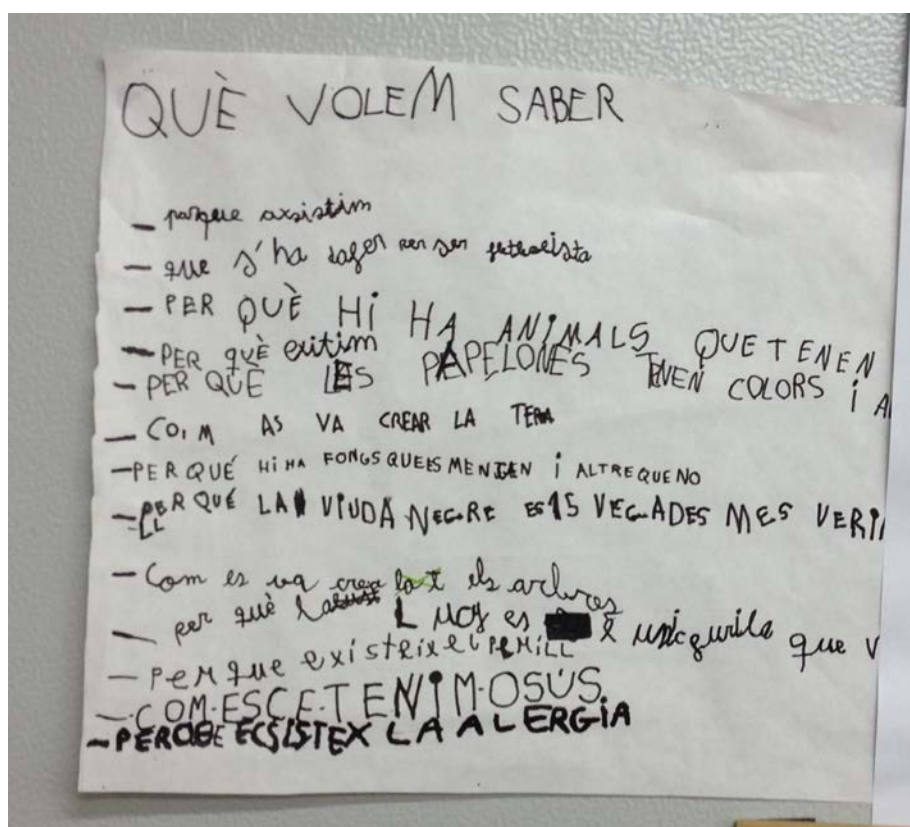 QUÈ VOLEM SABER
- parque axsistim
- que s'ha dafer per ser
- PER QUÈ HI HA ANIMALS QUE TENEN
- PER quÈ exitim
- PER QUÈ LES PAPELONES TENEN COLORS I A
- CO,M AS VA CREAR LA TERA
- PER QUÉ HI HA FONGS QUE ES MENGEN I ALTRE QUE NO
- PER QUÉ LA VIUDA NEGRE ES 15 VEGADES MES VERI
LL
- Com es va crea els arbres
- per què L es l que v
- PERque existeix el PERILL
- COM·ES·CE·TENIM·OSUS.
- PERQUE ECSISTEX LA ALERGIA